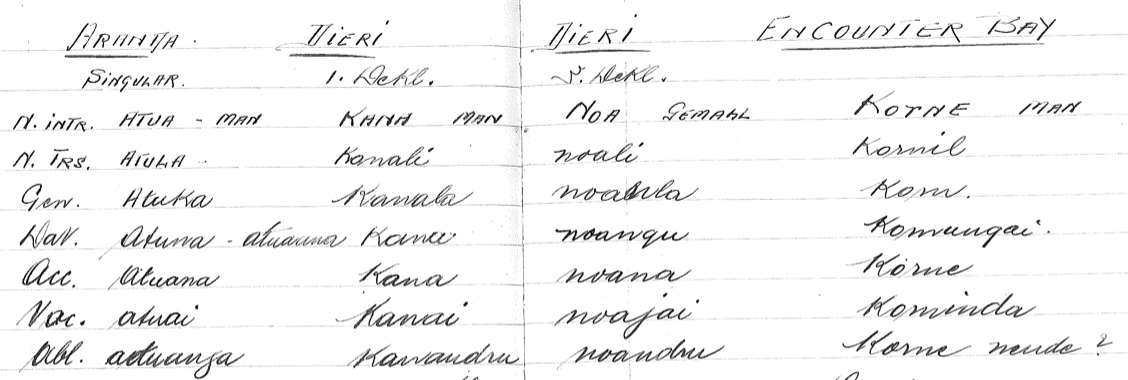 ARANDA. DIERI DIERI ENCOUNTER BAY
SINGULAR. 1. Dekl. 2. Dekl.
N. INTR. ATUA - MAN KANA MAN NOA GEMAHL KORNE MAN
N. TRS. ATULA. Kanali noali Kornil
Gen. Atuka Kanala Korn.
Dat. Atuna - atuauna Kana noangu Kornungai.
Acc. Atuana Kana noana Korne
Voc. atuai Kanai noajai Korninda
Abl. atuanga Kanandru noandru Korne nende?